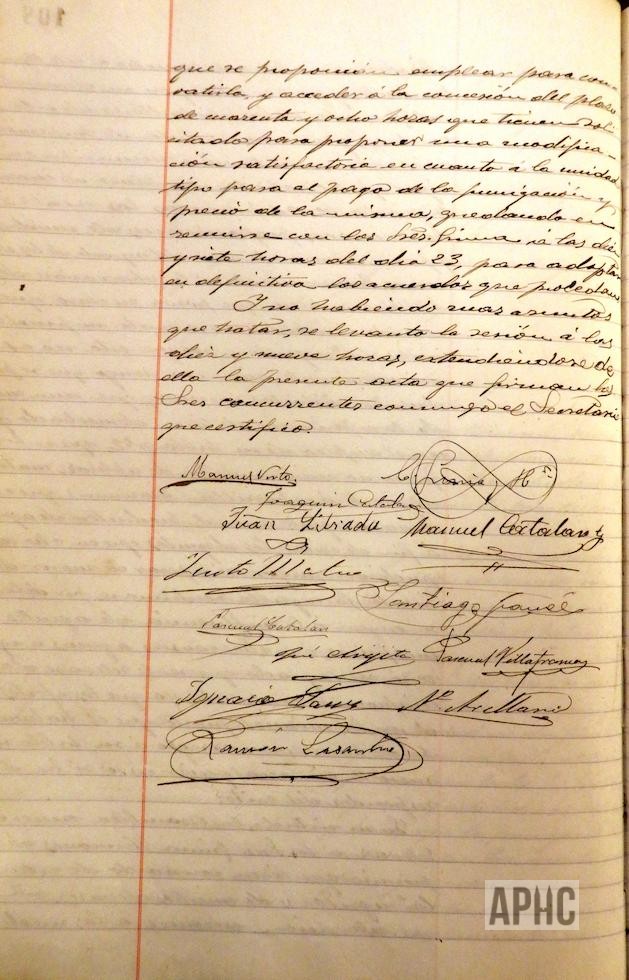 que se proponian emplear para com-
batirla y acceder á la concesión del plazo
de cuarenta y ocho horas que tienen soli-
citado para proponer una modifica-
ción satisfactoria en cuanto á la unidad
tipo para el pago de la fumigación y
precio de la misma, quedando en
reunirse con los Sres. Gimia á las diez
y siete horas del dia 23, para adoptar
en definitiva los acuerdos que procedan
Y no habiendo mas asuntos
que tratar, se levantó la sesión á las
diez y nueve horas, extendiéndose de
ella la presente acta que firman los
Sres concurrentes conmigo el Secretario
que certifico.
Manuel
Joaquin Catalan
Juan
Manuel Catalan
Justo
Santiago
Pascual Catalan
Pascual Villafranca
Ignacio Sanz
Arellano
Ramón
APHC